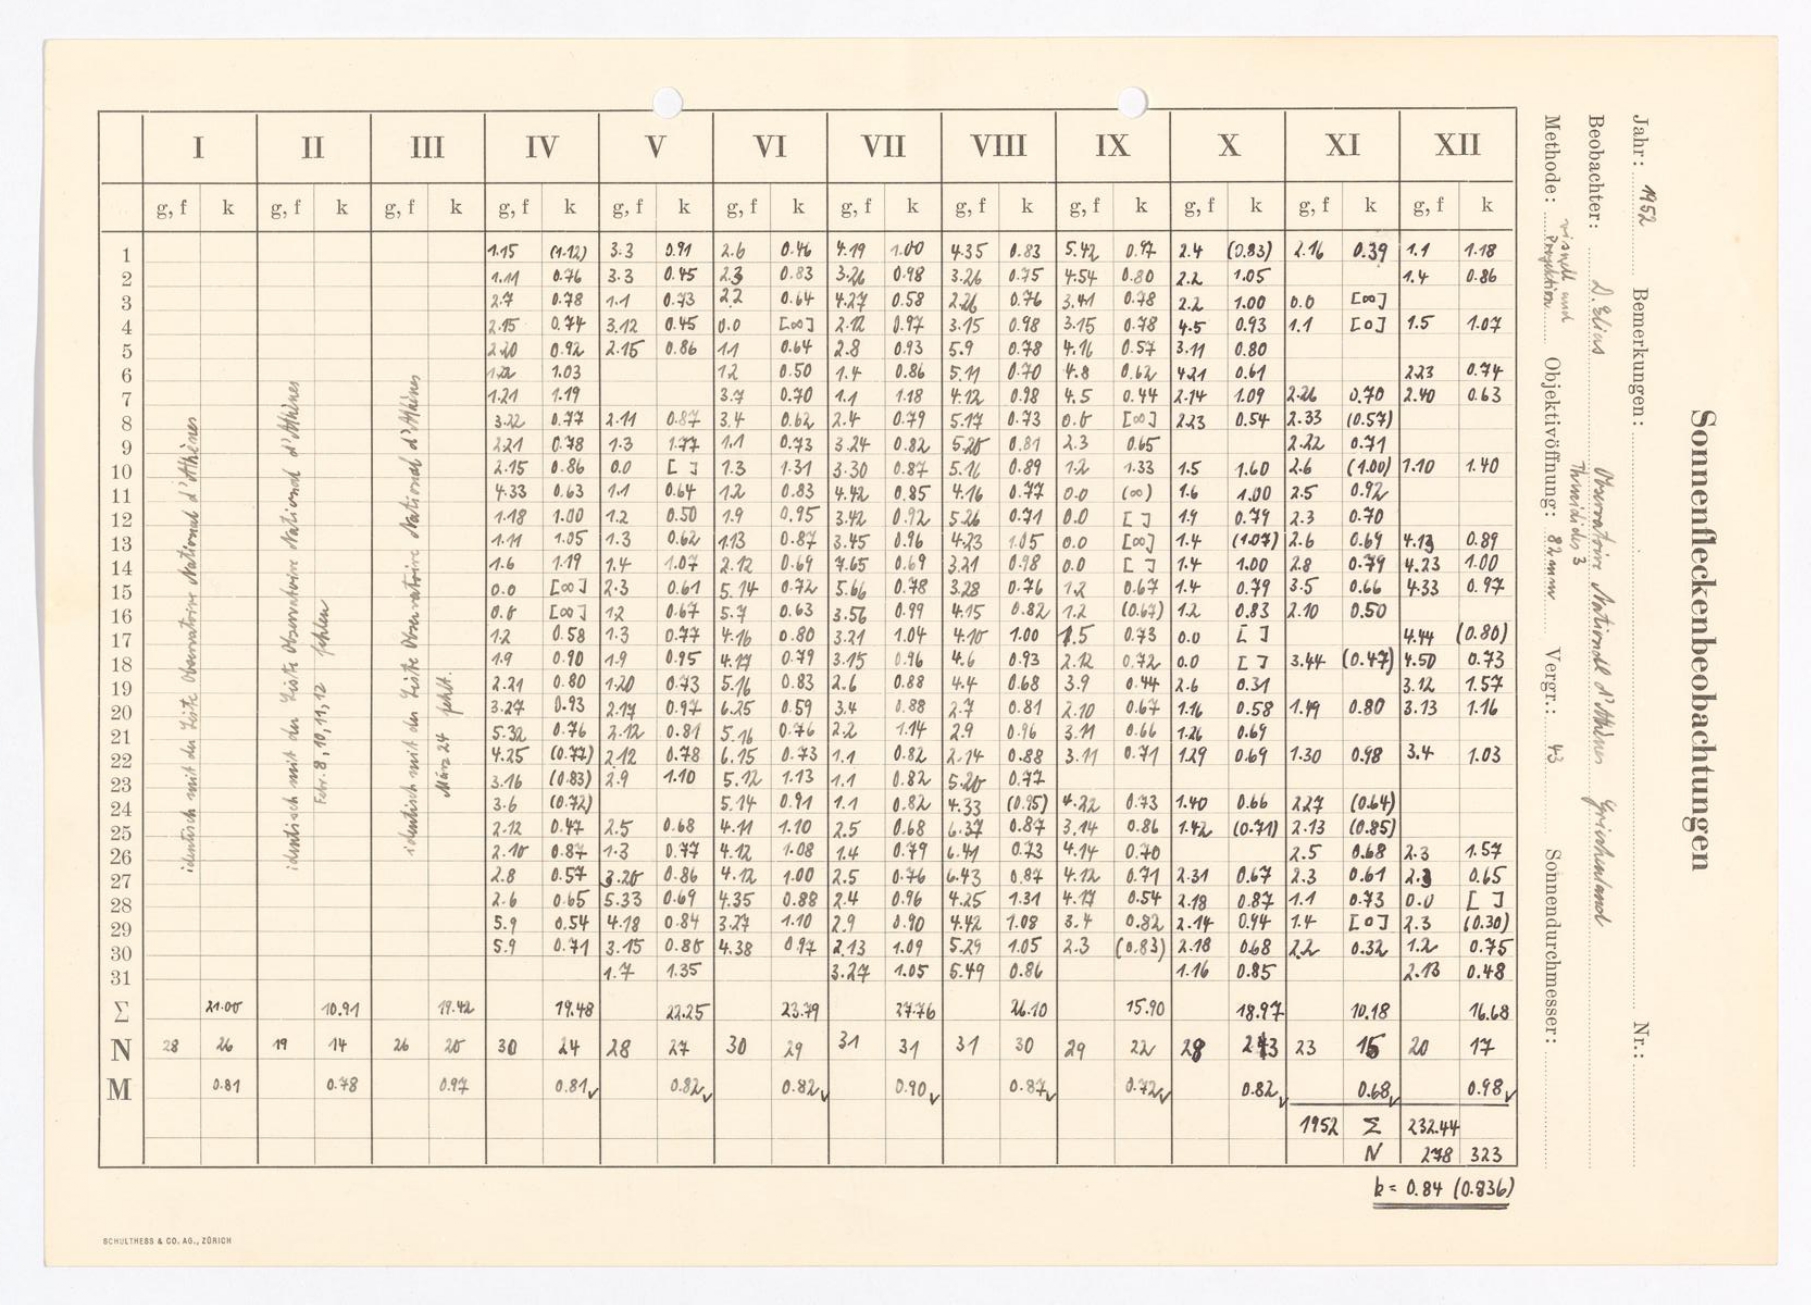 I II III IV V VI VII VIII IX X XI XII
g, f k g, f k g, f k g, f k g, f k g, f k g, f k g, f k g, f k g, f k g, f k g, f k
1 1.15 (1.12) 3.3 0.91 2.6 0.46 4.19 1.00 4.35 0.83 5.42 0.97 2.4 (0.83) 2.16 0.39 1.1 1.18
2 1.11 0.76 3.3 0.45 2.3 0.83 3.26 0.98 3.26 0.75 4.54 0.80 2.2 1.05 1.4 0.86
3 2.7 0.78 1.1 0.73 2.2 0.64 4.27 0.58 2.26 0.76 3.41 0.78 2.2 1.00 0.0 [∞]
4 2.15 0.74 3.12 0.45 0.0 [∞] 2.12 0.97 3.15 0.98 3.15 0.78 4.5 0.93 1.1 [0] 1.5 1.07
5 2.20 0.92 2.15 0.86 1.1 0.64 2.8 0.93 5.9 0.78 4.16 0.57 3.11 0.80
6 1.22 1.03 1.2 0.50 1.4 0.86 5.11 0.70 4.8 0.62 4.21 0.61 2.23 0.74
7 1.21 1.19 3.7 0.70 1.1 1.18 4.12 0.98 4.5 0.44 2.14 1.09 2.26 0.70 2.40 0.63
8 3.22 0.77 2.11 0.87 3.4 0.62 2.4 0.79 5.17 0.73 0.0 [∞] 2.23 0.54 2.33 (0.57)
9 2.21 0.78 1.3 1.77 1.1 0.73 3.24 0.82 5.20 0.81 2.3 0.65 2.22 0.71
10 2.15 0.86 0.0 [ ] 1.3 1.31 3.30 0.87 5.16 0.89 1.2 1.33 1.5 1.60 2.6 (1.00) 1.10 1.40
11 4.33 0.63 1.1 0.64 1.2 0.83 4.42 0.85 4.16 0.77 0.0 (∞) 1.6 1.00 2.5 0.92
12 1.18 1.00 1.2 0.50 1.9 0.95 3.42 0.92 5.26 0.71 0.0 [ ] 1.9 0.79 2.3 0.70
13 1.11 1.05 1.3 0.62 1.13 0.87 3.45 0.96 4.23 1.05 0.0 [∞] 1.4 (1.07) 2.6 0.69 4.13 0.89
14 1.6 1.19 1.4 1.07 2.12 0.69 7.65 0.69 3.21 0.98 0.0 [ ] 1.4 1.00 2.8 0.79 4.23 1.00
15 0.0 [∞] 2.3 0.61 5.14 0.72 5.66 0.78 3.28 0.76 1.2 0.67 1.4 0.79 3.5 0.66 4.33 0.97
16 0.0 [∞] 1.2 0.67 5.7 0.63 3.56 0.99 4.15 0.82 1.2 (0.67) 1.2 0.83 2.10 0.50
17 1.2 0.58 1.3 0.77 4.16 0.80 3.21 1.04 4.10 1.00 1.5 0.73 0.0 [ ] 4.44 (0.80)
18 1.9 0.90 1.9 0.95 4.17 0.79 3.15 0.96 4.6 0.93 2.12 0.72 0.0 [ ] 3.44 (0.47) 4.50 0.73
19 2.21 0.80 1.20 0.73 5.16 0.83 2.6 0.88 4.4 0.68 3.9 0.44 2.6 0.31 3.12 1.57
20 3.27 0.93 2.17 0.97 6.25 0.59 3.4 0.88 2.7 0.81 2.10 0.67 1.16 0.58 1.49 0.80 3.13 1.16
21 5.32 0.76 2.12 0.81 5.16 0.76 2.2 1.14 2.9 0.96 3.11 0.66 1.26 0.69
22 4.25 (0.77) 2.12 0.78 6.15 0.73 1.1 0.82 2.14 0.88 3.11 0.71 1.29 0.69 1.30 0.98 3.4 1.03
23 3.16 (0.83) 2.9 1.10 5.12 1.13 1.1 0.82 5.20 0.77
24 3.6 (0.72) 5.14 0.91 1.1 0.82 4.33 (0.95) 4.22 0.73 1.40 0.66 2.27 (0.64)
25 2.12 0.47 2.5 0.68 4.11 1.10 2.5 0.68 6.37 0.87 3.14 0.86 1.42 (0.71) 2.13 (0.85)
26 2.10 0.87 1.3 0.77 4.12 1.08 1.4 0.79 6.41 0.73 4.14 0.70 2.5 0.68 2.3 1.57
27 2.8 0.57 3.20 0.86 4.12 1.00 2.5 0.76 6.43 0.87 4.12 0.71 2.31 0.67 2.3 0.61 2.3 0.65
28 2.6 0.65 5.33 0.69 4.35 0.88 2.4 0.96 4.25 1.31 4.17 0.54 2.18 0.87 1.1 0.73 0.0 [ ]
29 5.9 0.54 4.18 0.84 3.27 1.10 2.9 0.90 4.42 1.08 3.4 0.82 2.14 0.94 1.4 [0] 2.3 (0.30)
30 5.9 0.71 3.15 0.80 4.38 0.97 2.13 1.09 5.29 1.05 2.3 (0.83) 2.18 0.68 2.2 0.32 1.2 0.75
31 1.7 1.35 3.27 1.05 5.49 0.86 1.16 0.85 2.13 0.48
Σ 21.00 10.91 19.42 19.48 22.25 23.79 27.76 26.10 15.90 18.97 10.18 16.68
N 28 26 19 14 26 20 30 24 28 27 30 29 31 31 31 30 29 22 28 23 23 15 20 17
M 0.81 0.78 0.97 0.81✓ 0.82✓ 0.82✓ 0.90✓ 0.87✓ 0.72✓ 0.82✓ 0.68✓ 0.98✓
1952 Σ 232.44
N 278 323
k = 0.84 (0.836)
identisch mit der Liste Observatoire National d'Athènes
identisch mit der Liste Observatoire National d'Athènes
Febr. 8, 10, 11, 12 fehlen
identisch mit der Liste Observatoire National d'Athènes
März 24 fehlt.
Sonnenfleckenbeobachtungen
Jahr: 1952 Bemerkungen: Nr.:
Beobachter: D. Elias Observatoire National d'Athènes Griechenland
Methode: visuell und Projektion Objektivöffnung: 82 mm Vergr.: 43 Sonnendurchmesser:
SCHULTHESS & CO. AG., ZÜRICH